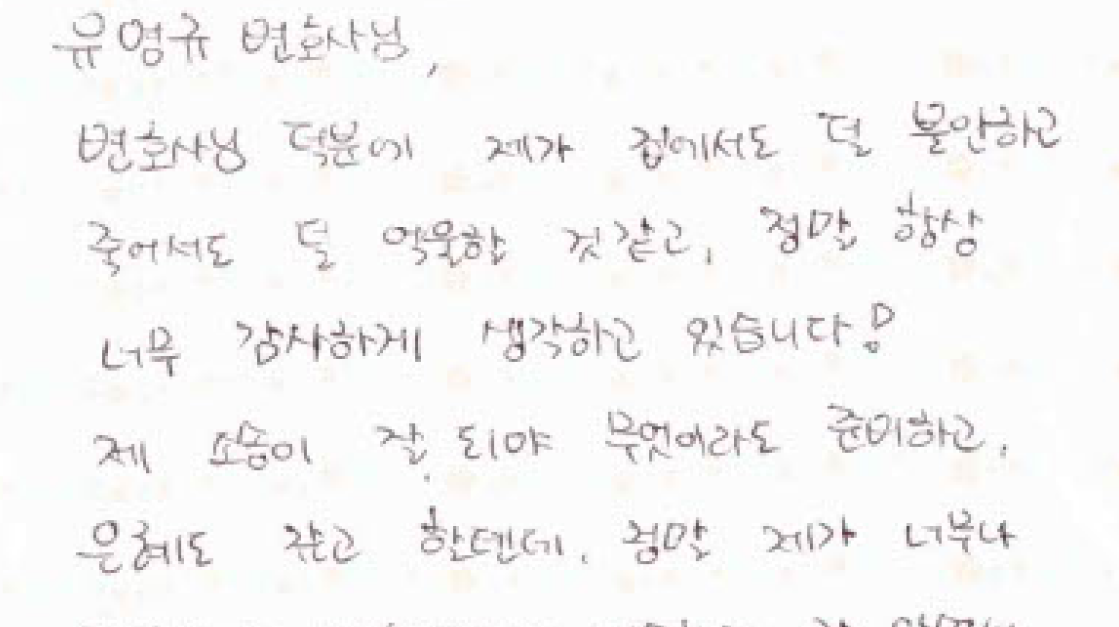 유영규 변호사님,
변호사님 덕분에 제가 집에서도 덜 불안하고
죽어서도 덜 억울할 것같고, 정말 항상
너무 감사하게 생각하고 있습니다!
제 소송이 잘 되야 무엇이라도 준비하고,
은혜도 갚고 할텐데. 정말 제가 너무나